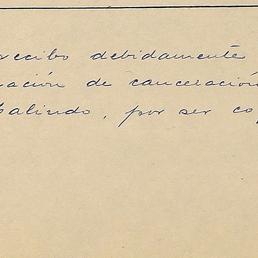 recibo debidamente
ación de cancelación
Galindo, por ser co